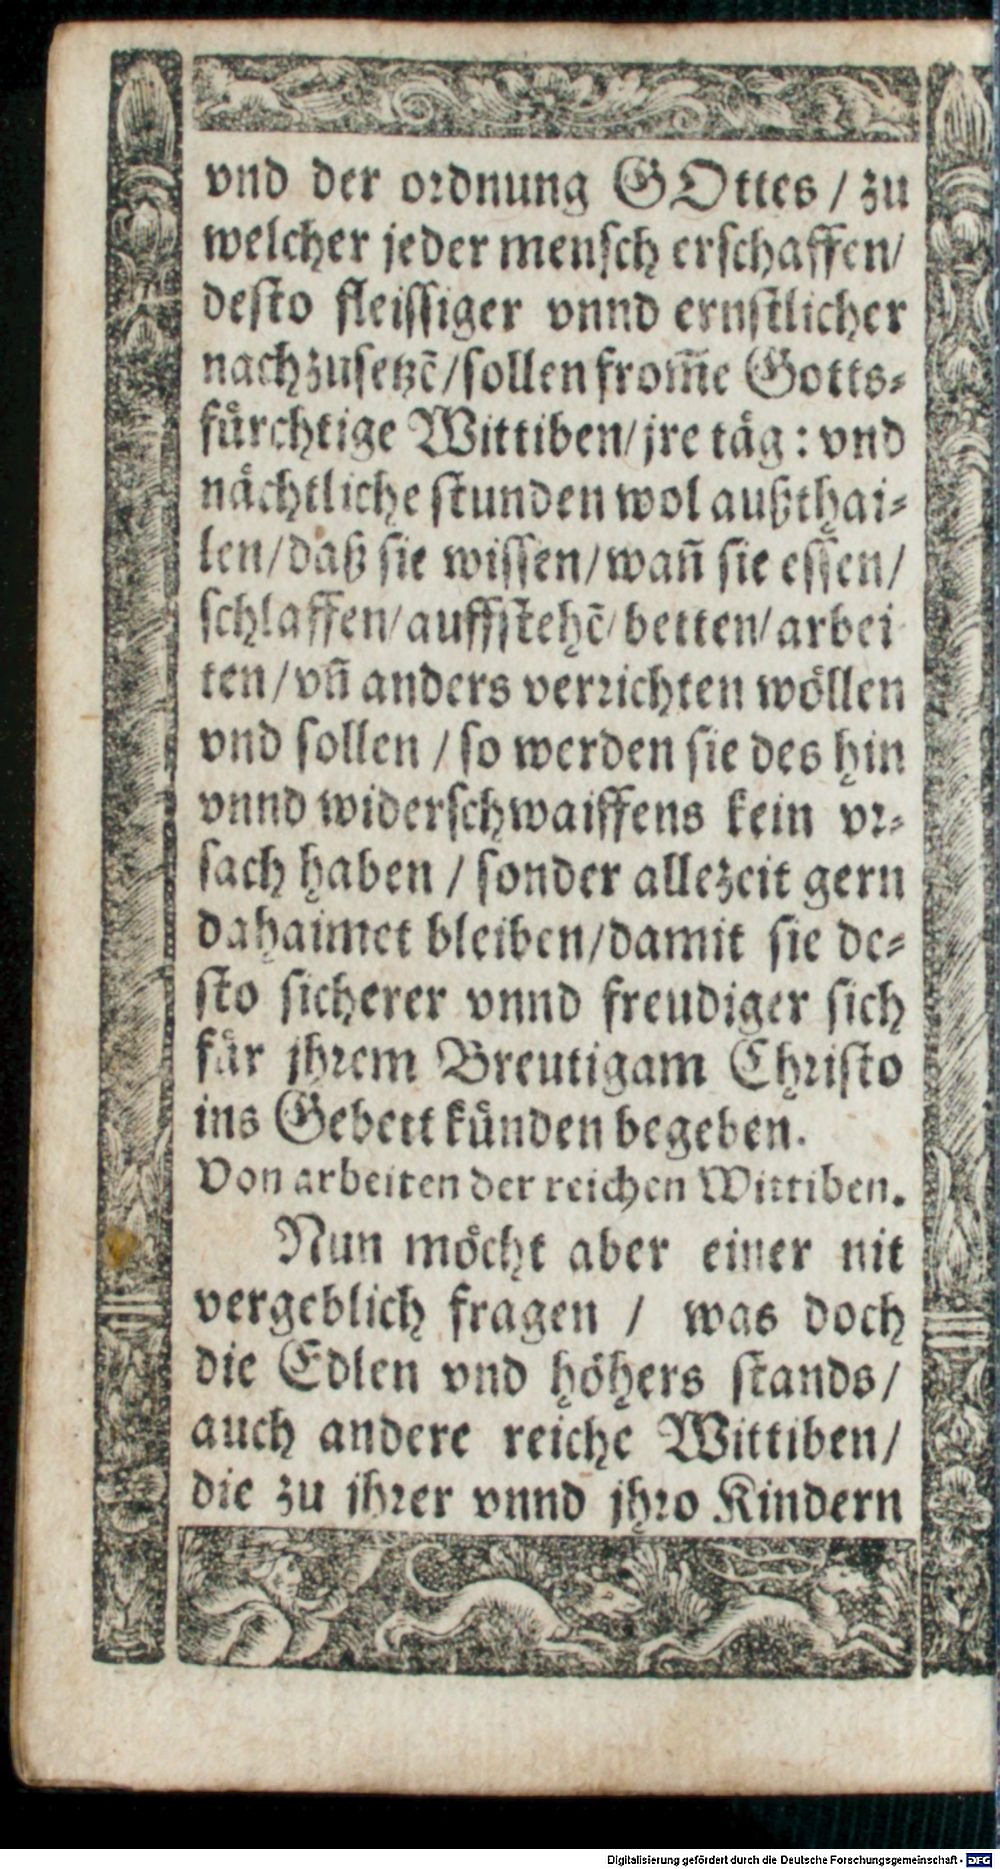 vnd der ordnung GOttes / zu
welcher jeder mensch erschaffen/
desto fleissiger vnnd ernstlicher
nachzusetzē/sollen from̃e Gotts⸗
fuͤrchtige Wittiben/jre taͤg: vnd
naͤchtliche stunden wol außthai⸗
len/daß sie wissen/wañ sie essen/
schlaffen/auffstehē/betten/arbei
ten/vñ anders verrichten woͤllen
vnd sollen / so werden sie des hin
vnnd widerschwaiffens kein vr⸗
sach haben / sonder allezeit gern
dahaimet bleiben/damit sie de⸗
sto sicherer vnnd freudiger sich
fuͤr jhrem Breutigam Christo
ins Gebett kuͤnden begeben.
Von arbeiten der reichen Wittiben.
Nun moͤcht aber einer nit
vergeblich fragen / was doch
die Edlen vnd hoͤhers stands/
auch andere reiche Wittiben/
die zu jhrer vnnd jhro Kindern
Digitalisierung gefördert durch die Deutsche Forschungsgemeinschaft - DFG